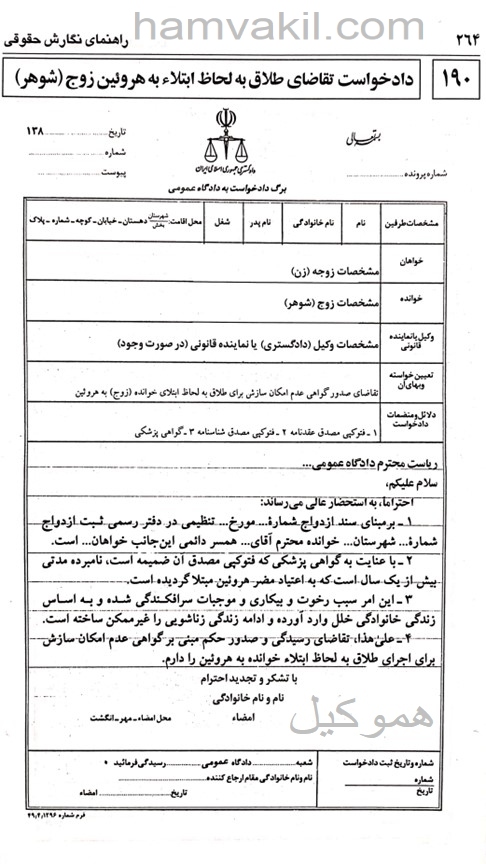 hamvakil.com
۲۶۴
راهنمای نگارش حقوقی
۱۹۰
دادخواست تقاضای طلاق به لحاظ ابتلاء به هروئین زوج (شوهر)
بسمه تعالی
تاریخ ............ ۱۳۸
شماره ............
پیوست ............
شماره پرونده ............
دادگستری جمهوری اسلامی ایران
برگ دادخواست به دادگاه عمومی
مشخصات طرفین
نام
نام خانوادگی
نام پدر
شغل
محل اقامت: شهرستان بخش دهستان - خیابان - کوچه - شماره - پلاک
خواهان
مشخصات زوجه (زن)
خوانده
مشخصات زوج (شوهر)
وکیل یا نماینده قانونی
مشخصات وکیل (دادگستری) یا نماینده قانونی (در صورت وجود)
تعیین خواسته وبهای آن
تقاضای صدور گواهی عدم امکان سازش برای طلاق به لحاظ ابتلای خوانده (زوج) به هروئین
دلائل و منضمات دادخواست
۱ - فتوکپی مصدق عقدنامه ۲ - فتوکپی مصدق شناسنامه ۳ - گواهی پزشکی
ریاست محترم دادگاه عمومی...
سلام علیکم،
احتراماً، به استحضار عالی می‌رساند:
۱ - برمبنای سند ازدواج شمارهٔ... مورخ... تنظیمی در دفتر رسمی ثبت ازدواج
شمارهٔ... شهرستان... خوانده محترم آقای... همسر دائمی این‌جانب خواهان... است.
۲ - با عنایت به گواهی پزشکی که فتوکپی مصدق آن ضمیمه است، نامبرده مدتی
بیش از یک سال است که به اعتیاد مضر هروئین مبتلا گردیده است.
۳ - این امر سبب رخوت و بیکاری و موجبات سرافکندگی شده و به اساس
زندگی خانوادگی خلل وارد آورده و ادامه زندگی زناشویی را غیرممکن ساخته است.
۴ - علی‌هذا، تقاضای رسیدگی و صدور حکم مبنی بر گواهی عدم امکان سازش
برای اجرای طلاق به لحاظ ابتلاء خوانده به هروئین را دارم.
با تشکر و تجدید احترام
نام و نام خانوادگی
امضاء
محل امضاء - مهر - انگشت
هم وکیل
شماره و تاریخ ثبت دادخواست
شماره
تاریخ
شعبه ............ دادگاه عمومی ............ رسیدگی فرمائید
نام و نام خانوادگی مقام ارجاع کننده ............
تاریخ ............ امضاء
فرم شماره ۴۹/۴/۱۲۹۶